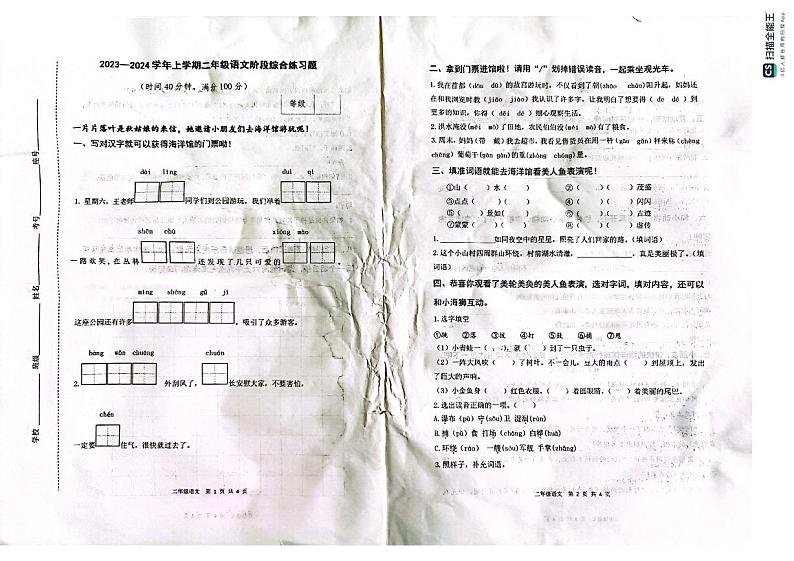 2023—2024学年上学期二年级语文阶段综合练习题
（时间40分钟，满分100分）
等级
一片片落叶是秋姑娘的来信，她邀请小朋友们去海洋馆游玩呢！
一、写对汉字就可以获得海洋馆的门票呦！
dài lǐng duì qí
1. 星期六，王老师 同学们到公园游玩，我们举着
shēn chù xióng māo
一路欢笑，在丛林 还发现了几只可爱的 。
míng shèng gǔ jì
这座公园还有许多 ，吸引了众多游客。
bāng mǎn chuāng chuán
2. 外刮风了， 长安慰大家，不要害怕。
chén
一定要 住气，很快就过去了。
学校
班级
姓名
考号
座号
二年级语文 第 1 页 共 4 页
二、拿到门票进馆啦！请用“/”划掉错误读音，一起乘坐观光车。
1. 我在首都（dōu dū）的鼓直游玩时，不仅看到了朝(zhāo cháo）阳升起，妈妈还
在和我浏览时教（jiāo jiào）我认识了许多字，让我明白了想要得（de dé）到
更多的知识，你得（děi dé）细心观察生活。
2. 洪水淹没(méi mò）了田地，农民伯伯没(méi mò)有了粮食。
3. 周末，妈妈(带 戴）我去超市，我看见售货员在用一杆（gān gǎn）秤来称(chēng
chèng）葡萄干(gān gàn)的重(zhòng chóng)量。
三、填准词语就能去海洋馆看美人鱼表演呢！
①山（ ）水（ ） ②（ ）（ ）茂盛
③点点（ ）（ ） ④（ ）（ ）闪闪
⑤（ ）景如（ ） ⑥（ ）（ ）古迹
⑦蒙蒙（ ）（ ） ⑧（ ）（ ）虚传
1. 如同夜空中的星星，照亮了人们回家的路。（填词语）
2. 这个小山村四周群山环绕，村前湖水清澈， ，真是美丽极了。（填
词语）
四、恭喜你观看了美轮美奂的美人鱼表演，选对字词，填对内容，还可以
和小海狮互动。
1. 选字填空
①跳 ②落 ③披 ④打 ⑤鼓 ⑥捕 ⑦甩
（1）小青蛙一（ ），就（ ）到了一只虫子。
（2）一阵大风吹（ ）了树叶，不一会儿，豆大的雨点（ ）到屋顶上，发出
了巨大的声响。
（3）小金鱼身（ ）红色衣裳，（ ）着低眼睛，（ ）着美丽的尾巴。
2. 选出读音正确的一项。（ ）
A. 瀑布（pù）守(sǒu)卫 湿润(rùn)
B. 捕（pǔ）食 打场（cháng）白桦(huà)
C. 环绕（rào） 一艘(sōu)军舰 手掌(zhǎng)
3. 照样子，补充词语。
二年级语文 第 2 页 共 4 页
CS 扫描全能王
3亿人都在用的扫描App